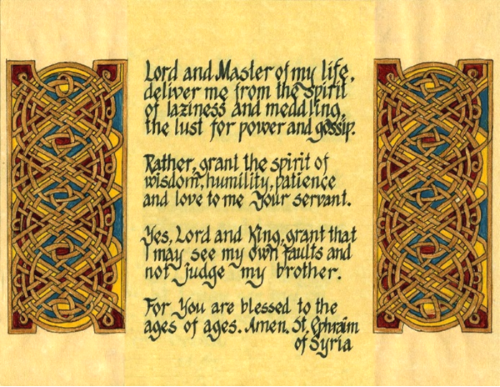 Lord and Master of my life,
deliver me from the Spirit
of laziness and meddling,
the lust for power and gossip.
Rather, grant the spirit of
wisdom, humility, patience
and love to me Your servant.
Yes, Lord and King, grant that
I may see my own faults and
not judge my brother.
For You are blessed to the
ages of ages. Amen. St. Ephraim
of Syria